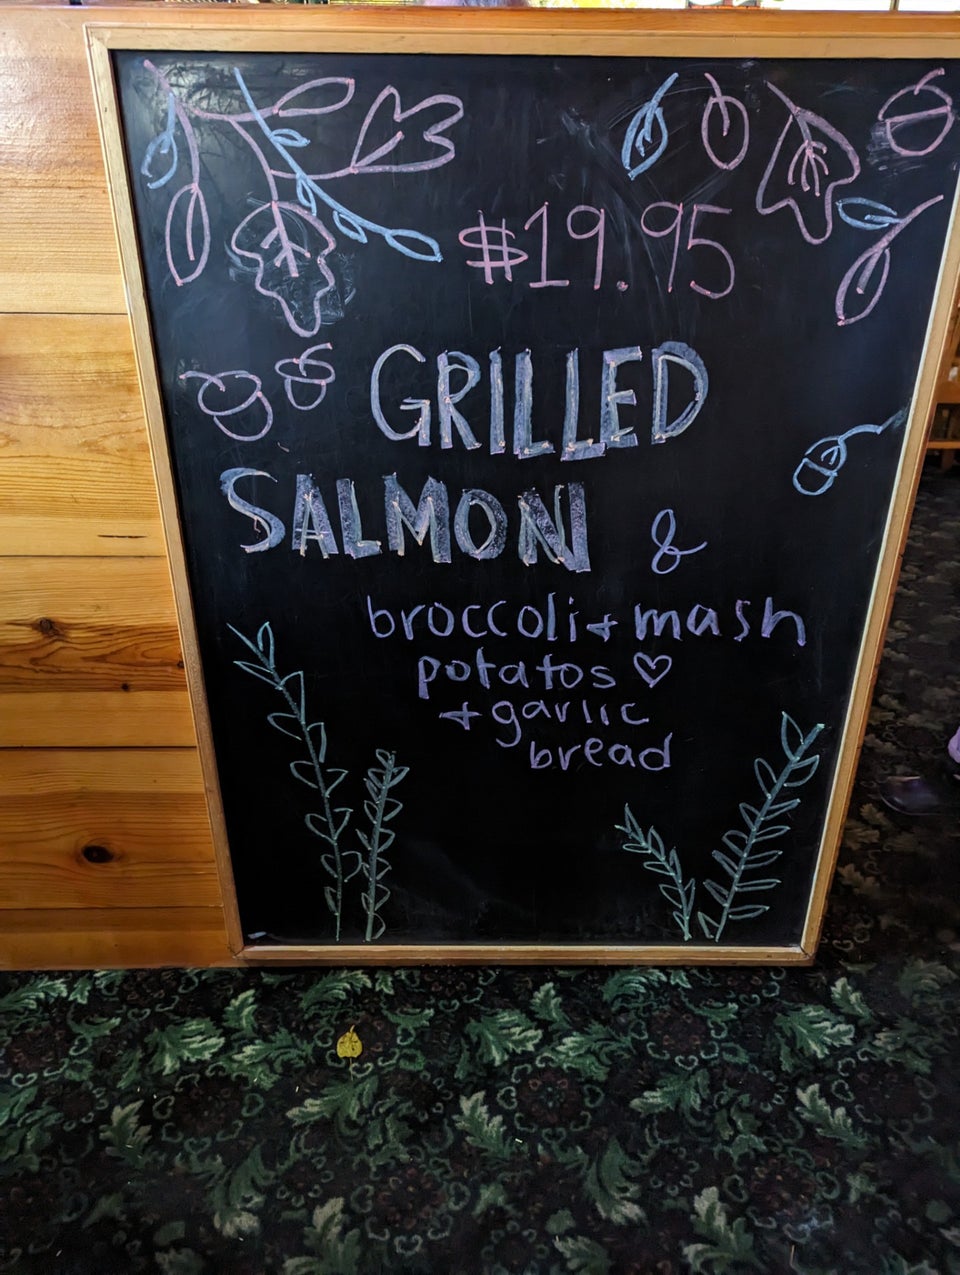 $19.95
GRILLED
SALMON &
broccoli + mash
potatos ♡
+ garlic
bread